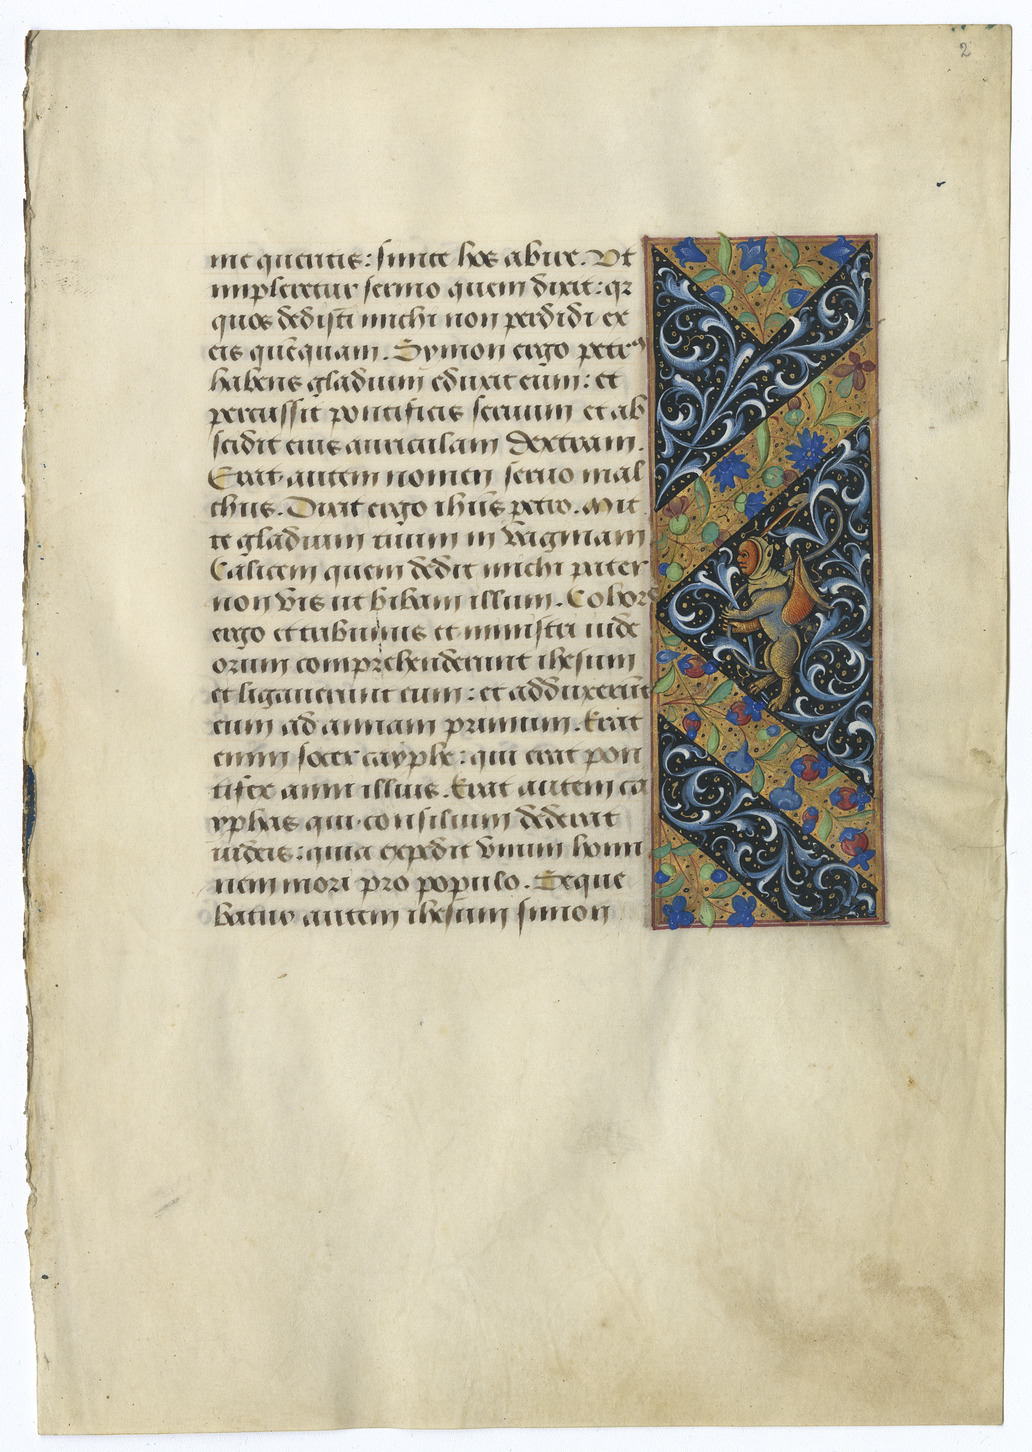 2
me queritis: sinite hos abire. Vt
impleretur sermo quem dixit: qr
quos dedisti michi non perdidi ex
eis quēquam. Symon ergo petrꝰ
habens gladium eduxit eum: et
percussit pontificis seruum et ab
scidit eius auriculam dextram.
Erat autem nomen seruo mal
chus. Dixit ergo ihūs petro. Mit
te gladium tuum in vaginam
Calicem quem dedit michi pater
non vis ut bibam illum. Cohors
ergo et tribunus et ministri iude
orum comprehenderunt ihesum
et ligauerunt eum: et adduxerūt
eum ad annam primum. Erat
enim socer cayphe: qui erat pon
tifex anni illius. Erat autem ca
yphas qui consilium dederat
iudeis: quia expedit vnum homi
nem mori pro populo. Seque
batur autem ihesum simon